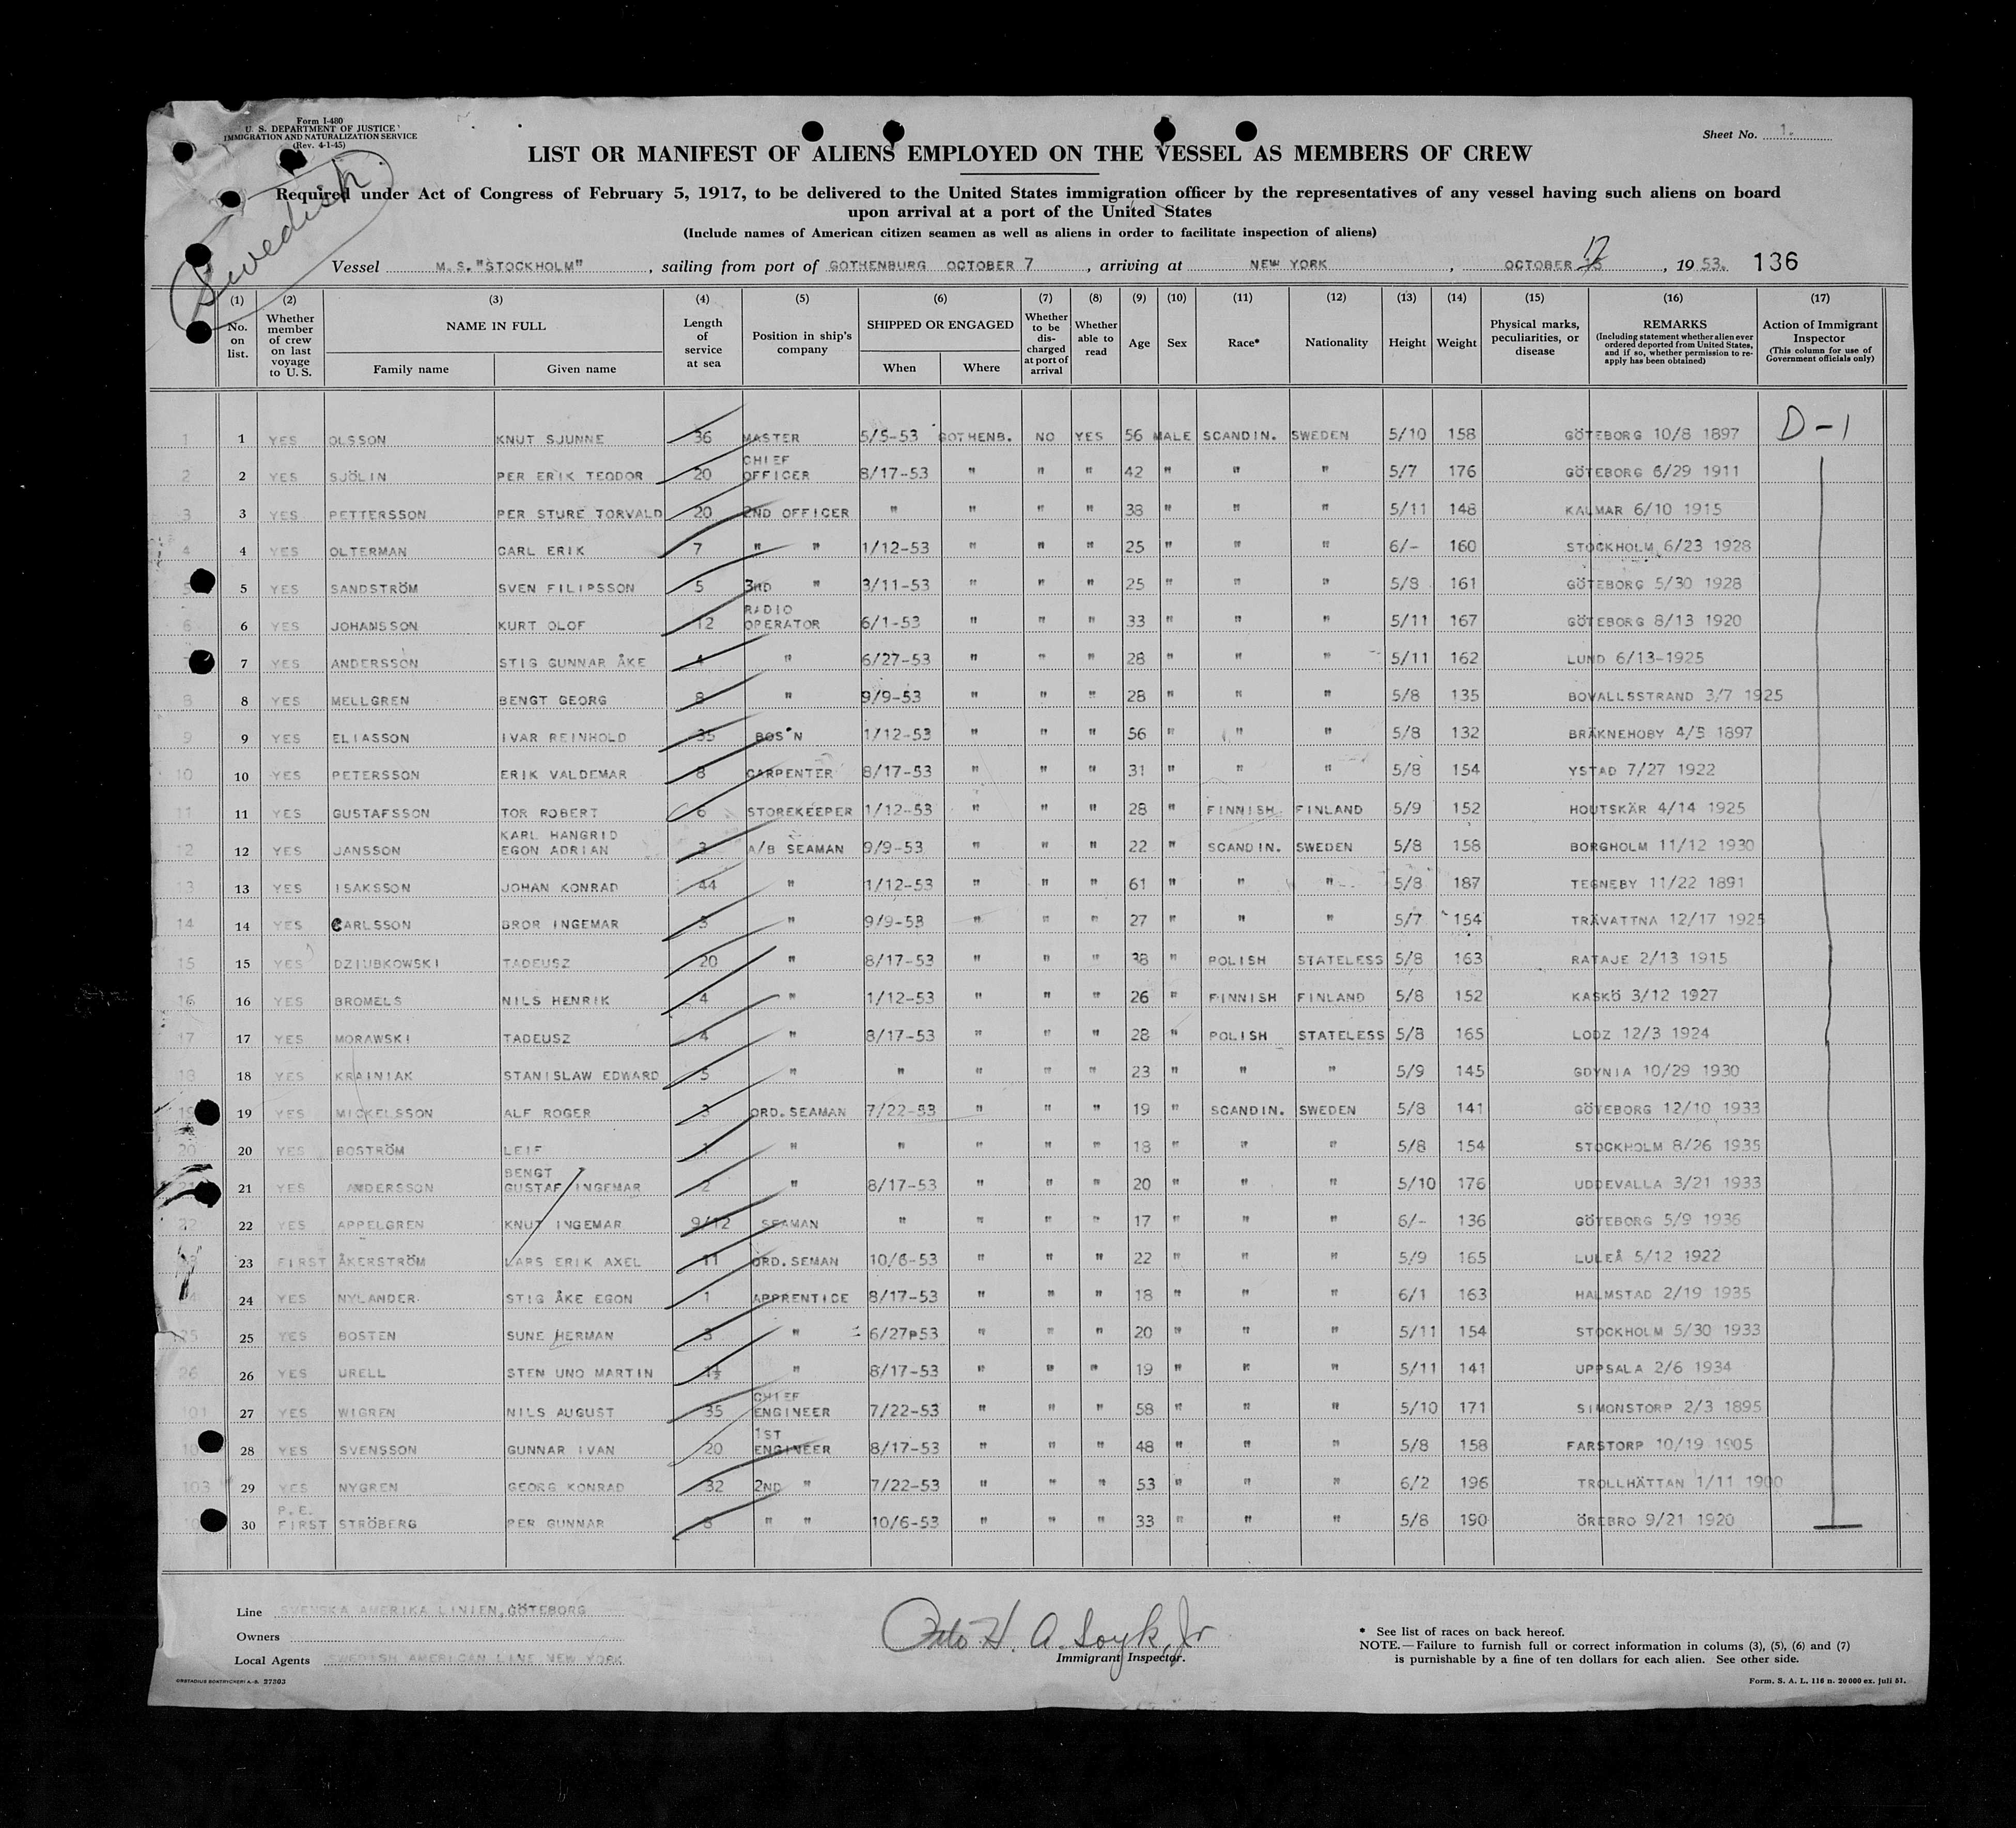 Form I-480
U. S. DEPARTMENT OF JUSTICE
IMMIGRATION AND NATURALIZATION SERVICE
(Rev. 4-1-45)
Swedish
Sheet No. 1.
LIST OR MANIFEST OF ALIENS EMPLOYED ON THE VESSEL AS MEMBERS OF CREW
Required under Act of Congress of February 5, 1917, to be delivered to the United States immigration officer by the representatives of any vessel having such aliens on board
upon arrival at a port of the United States
(Include names of American citizen seamen as well as aliens in order to facilitate inspection of aliens)
Vessel M.S."STOCKHOLM" , sailing from port of GOTHENBURG OCTOBER 7 , arriving at NEW YORK , OCTOBER 17 , 19 53. 136
(1) (2) (3) (4) (5) (6) (7) (8) (9) (10) (11) (12) (13) (14) (15) (16) (17)
No. on list. Whether member of crew on last voyage to U. S. NAME IN FULL Family name Given name Length of service at sea Position in ship's company SHIPPED OR ENGAGED When Where Whether to be discharged at port of arrival Whether able to read Age Sex Race* Nationality Height Weight Physical marks, peculiarities, or disease REMARKS (Including statement whether alien ever ordered deported from United States, and if so, whether permission to re-apply has been obtained) Action of Immigrant Inspector (This column for use of Government officials only)
1 1 YES OLSSON KNUT SJUNNE 36 MASTER 5/5-53 GOTHENB. NO YES 56 MALE SCANDIN. SWEDEN 5/10 158 GÖTEBORG 10/8 1897 D-1
2 2 YES SJÖLIN PER ERIK TEODOR 20 CHIEF OFFICER 8/17-53 " " " 42 " " " 5/7 176 GÖTEBORG 6/29 1911
3 3 YES PETTERSSON PER STURE TORVALD 20 2ND OFFICER " " " " 38 " " " 5/11 148 KALMAR 6/10 1915
4 4 YES OLTERMAN CARL ERIK 7 " " 1/12-53 " " " 25 " " " 6/- 160 STOCKHOLM 6/23 1928
5 5 YES SANDSTRÖM SVEN FILIPSSON 5 3RD " 3/11-53 " " " 25 " " " 5/8 161 GÖTEBORG 5/30 1928
6 6 YES JOHANSSON KURT OLOF 12 RADIO OPERATOR 6/1-53 " " " 33 " " " 5/11 167 GÖTEBORG 8/13 1920
7 YES ANDERSSON STIG GUNNAR ÅKE 4 " 6/27-53 " " " 28 " " " 5/11 162 LUND 6/13-1925
8 8 YES MELLGREN BENGT GEORG 8 " 9/9-53 " " " 28 " " " 5/8 135 BOVALLSSTRAND 3/7 1925
9 9 YES ELIASSON IVAR REINHOLD 35 BOS'N 1/12-53 " " " 56 " " " 5/8 132 BRÄKNEHOBY 4/5 1897
10 10 YES PETERSSON ERIK VALDEMAR 8 CARPENTER 8/17-53 " " " 31 " " " 5/8 154 YSTAD 7/27 1922
11 11 YES GUSTAFSSON TOR ROBERT 6 STOREKEEPER 1/12-53 " " " 28 " FINNISH FINLAND 5/9 152 HOUTSKÄR 4/14 1925
12 12 YES JANSSON KARL HANGRID EGON ADRIAN 3 A/B SEAMAN 9/9-53 " " " 22 " SCANDIN. SWEDEN 5/8 158 BORGHOLM 11/12 1930
13 13 YES ISAKSSON JOHAN KONRAD 44 " 1/12-53 " " " 61 " " " 5/8 187 TEGNEBY 11/22 1891
14 14 YES CARLSSON BROR INGEMAR 3 " 9/9-53 " " " 27 " " " 5/7 154 TRÄVATTNA 12/17 1925
15 15 YES DZIUBKOWSKI TADEUSZ 20 " 8/17-53 " " " 38 " POLISH STATELESS 5/8 163 RATAJE 2/13 1915
16 16 YES BROMELS NILS HENRIK 4 " 1/12-53 " " " 26 " FINNISH FINLAND 5/8 152 KASKÖ 3/12 1927
17 17 YES MORAWSKI TADEUSZ 4 " 8/17-53 " " " 28 " POLISH STATELESS 5/8 165 LODZ 12/3 1924
18 18 YES KRAINIAK STANISLAW EDWARD 5 " " " " " 23 " " " 5/9 145 GDYNIA 10/29 1930
19 19 YES MICKELSSON ALF ROGER 3 ORD.SEAMAN 7/22-53 " " " 19 " SCANDIN. SWEDEN 5/8 141 GÖTEBORG 12/10 1933
20 20 YES BOSTRÖM LEIF 1 " " " " " 18 " " " 5/8 154 STOCKHOLM 8/26 1935
21 YES ANDERSSON BENGT GUSTAF INGEMAR 2 " 8/17-53 " " " 20 " " " 5/10 176 UDDEVALLA 3/21 1933
22 22 YES APPELGREN KNUT INGEMAR 9/12 SEAMAN " " " " 17 " " " 6/- 136 GÖTEBORG 5/9 1936
23 FIRST ÅKERSTRÖM LARS ERIK AXEL 11 ORD.SEMAN 10/6-53 " " " 22 " " " 5/9 165 LULEÅ 5/12 1922
24 YES NYLANDER STIG ÅKE EGON 1 APPRENTICE 8/17-53 " " " 18 " " " 6/1 163 HALMSTAD 2/19 1935
25 25 YES BOSTEN SUNE HERMAN 3 " 6/27P53 " " " 20 " " " 5/11 154 STOCKHOLM 5/30 1933
26 26 YES URELL STEN UNO MARTIN 1½ " 8/17-53 " " " 19 " " " 5/11 141 UPPSALA 2/6 1934
101 27 YES WIGREN NILS AUGUST 35 CHIEF ENGINEER 7/22-53 " " " 58 " " " 5/10 171 SIMONSTORP 2/3 1895
28 YES SVENSSON GUNNAR IVAN 20 1ST ENGINEER 8/17-53 " " " 48 " " " 5/8 158 FARSTORP 10/19 1905
103 29 YES NYGREN GEORG KONRAD 32 2ND " 7/22-53 " " " 53 " " " 6/2 196 TROLLHÄTTAN 1/11 1900
30 P.E. FIRST STRÖBERG PER GUNNAR 8 " " 10/6-53 " " " 33 " " " 5/8 190 ÖREBRO 9/21 1920
Line SVENSKA AMERIKA LINIEN, GÖTEBORG
Owners
Local Agents SWEDISH AMERICAN LINE NEW YORK
Otto H. A. Soyk, Jr
Immigrant Inspector.
* See list of races on back hereof.
NOTE.—Failure to furnish full or correct information in colums (3), (5), (6) and (7)
is punishable by a fine of ten dollars for each alien. See other side.
27303
Form. S. A. L. 116 n. 20 000 ex. juli 51.